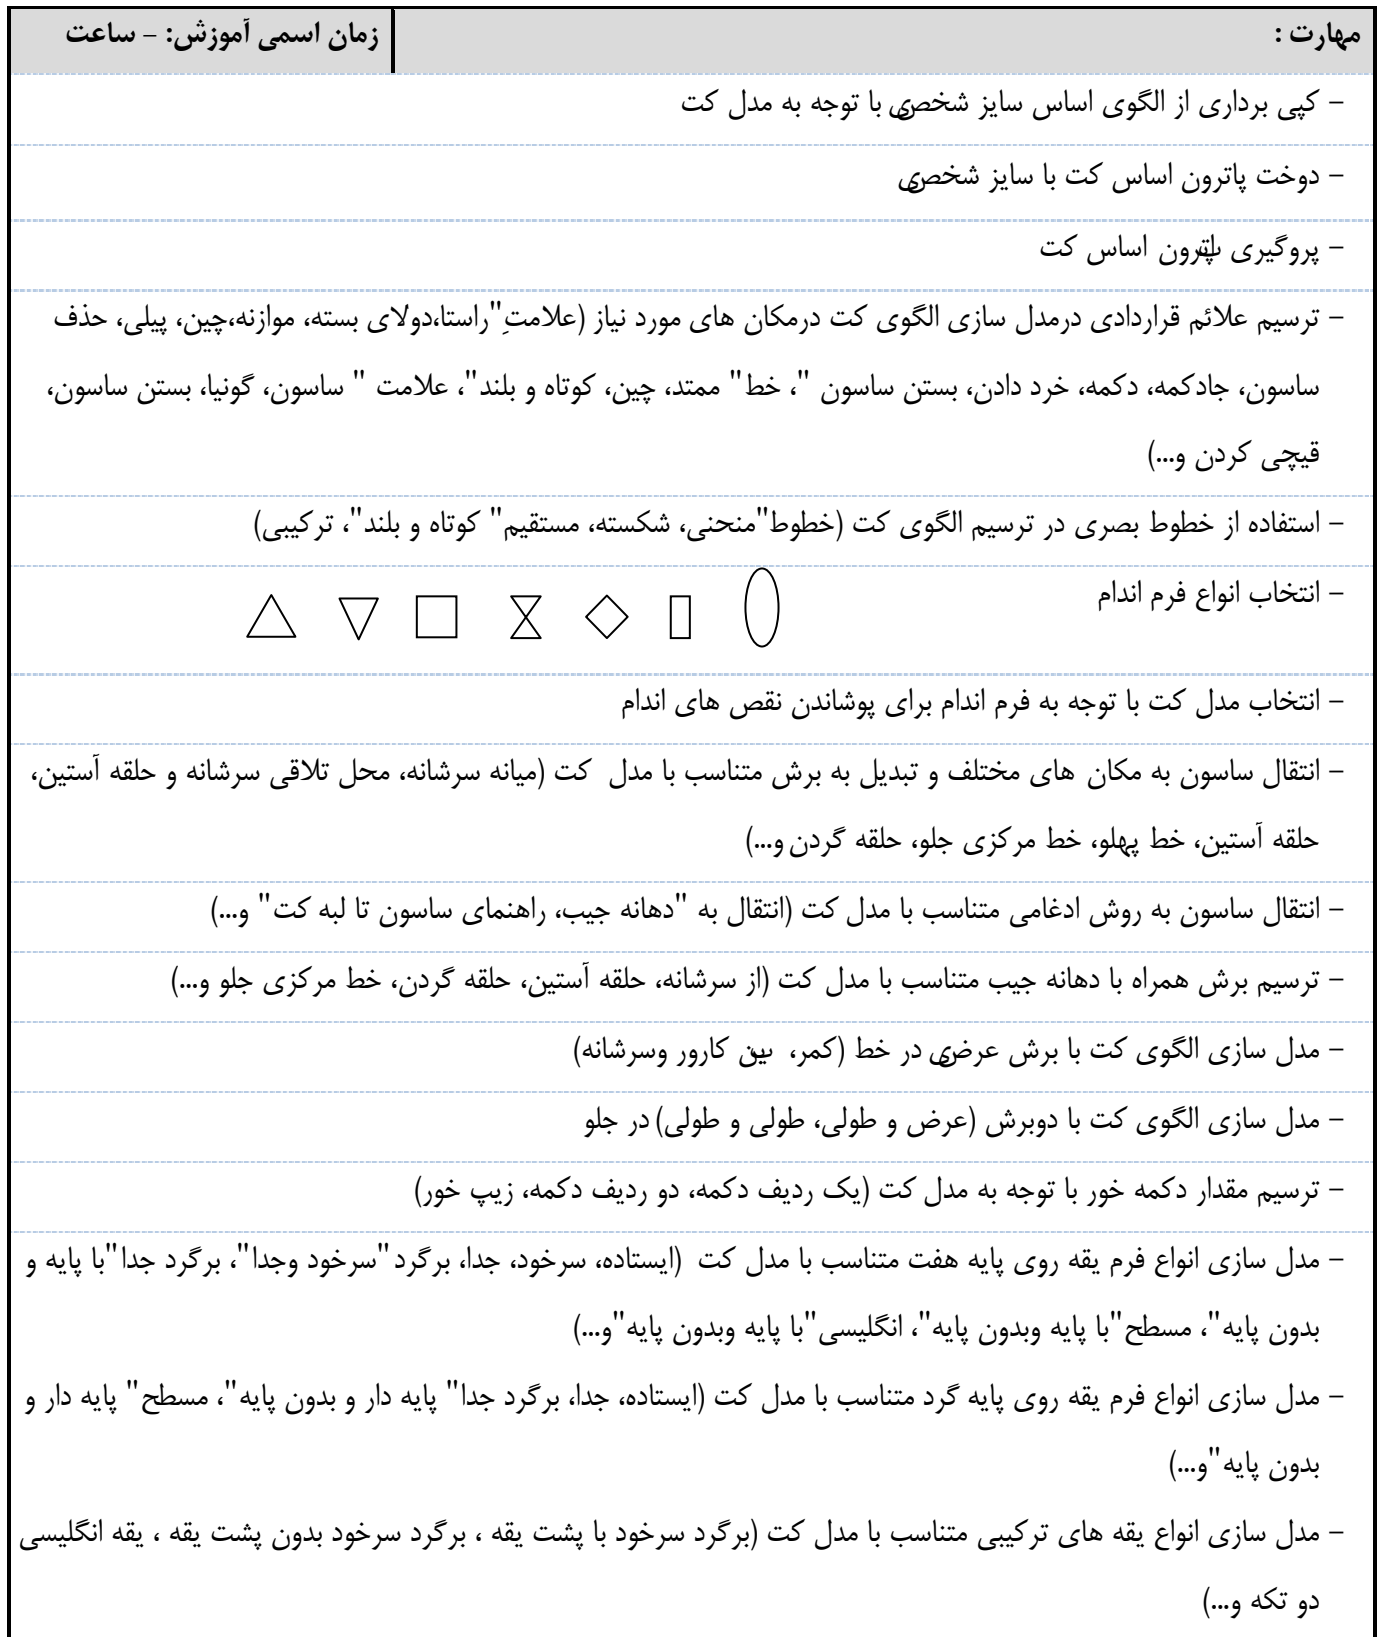 مهارت :
زمان اسمی آموزش: – ساعت
– کپی برداری از الگوی اساس سایز شخصی با توجه به مدل کت
– دوخت پاترون اساس کت با سایز شخصی
– پروگیری پاترون اساس کت
– ترسیم علائم قراردادی درمدل سازی الگوی کت درمکان های مورد نیاز (علامتِ"راستا،دولای بسته، موازنه،چین، پیلی، حذف
ساسون، جادکمه، دکمه، خرد دادن، بستن ساسون "، خط" ممتد، چین، کوتاه و بلند"، علامت " ساسون، گونیا، بستن ساسون،
قیچی کردن و...)
– استفاده از خطوط بصری در ترسیم الگوی کت (خطوط"منحنی، شکسته، مستقیم" کوتاه و بلند"، ترکیبی)
– انتخاب انواع فرم اندام
– انتخاب مدل کت با توجه به فرم اندام برای پوشاندن نقص های اندام
– انتقال ساسون به مکان های مختلف و تبدیل به برش متناسب با مدل کت (میانه سرشانه، محل تلاقی سرشانه و حلقه آستین،
حلقه آستین، خط پهلو، خط مرکزی جلو، حلقه گردن و...)
– انتقال ساسون به روش ادغامی متناسب با مدل کت (انتقال به "دهانه جیب، راهنمای ساسون تا لبه کت" و...)
– ترسیم برش همراه با دهانه جیب متناسب با مدل کت (از سرشانه، حلقه آستین، حلقه گردن، خط مرکزی جلو و...)
– مدل سازی الگوی کت با برش عرضی در خط (کمر، بین کارور وسرشانه)
– مدل سازی الگوی کت با دوبرش (عرض و طولی، طولی و طولی) در جلو
– ترسیم مقدار دکمه خور با توجه به مدل کت (یک ردیف دکمه، دو ردیف دکمه، زیپ خور)
– مدل سازی انواع فرم یقه روی پایه هفت متناسب با مدل کت (ایستاده، سرخود، جدا، برگرد"سرخود وجدا"، برگرد جدا"با پایه و
بدون پایه"، مسطح"با پایه وبدون پایه"، انگلیسی"با پایه وبدون پایه"و...)
– مدل سازی انواع فرم یقه روی پایه گرد متناسب با مدل کت (ایستاده، جدا، برگرد جدا" پایه دار و بدون پایه"، مسطح" پایه دار و
بدون پایه"و...)
– مدل سازی انواع یقه های ترکیبی متناسب با مدل کت (برگرد سرخود با پشت یقه ، برگرد سرخود بدون پشت یقه ، یقه انگلیسی
دو تکه و...)